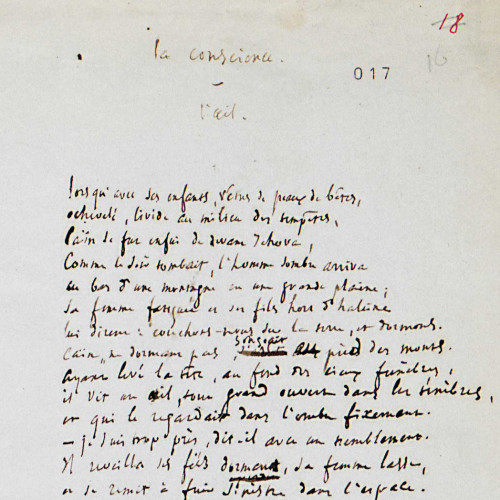 18
16
la conscience.
017
—
l'œil.
lorsqu'avec ses enfants, vêtus de peaux de bêtes,
échevelé, livide au milieu des tempêtes,
Caïn se fut enfui de devant Jéhova,
Comme le soir tombait, l'homme sombre arriva
au bas d'une montagne en une grande plaine ;
Sa femme fatiguée et ses fils hors d'haleine
lui dirent : couchons-nous sur la terre, et dormons.
Caïn, ne dormant pas, songeait au pied des monts.
ayant levé la tête, au fond des cieux funèbres,
il vit un œil, tout grand ouvert dans les ténèbres,
et qui le regardait dans l'ombre fixement.
— je suis trop près, dit-il avec un tremblement.
Il réveilla ses fils dormant, sa femme lasse,
et se remit à fuir sinistre dans l'espace.